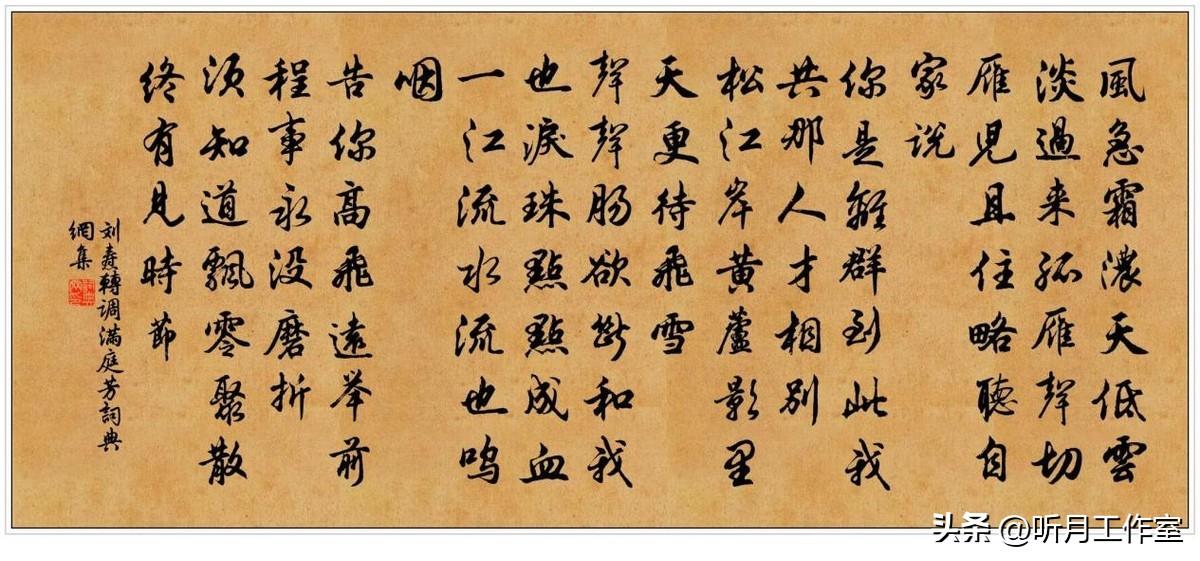 風急霜濃天低雲
淡過来孤雁聲切
雁児且住略聽自
家说
你是離群到此我
共那人才相别
松江岸黄蘆影里
天更待飛雪
聲聲肠欲断和我
也淚珠點點成血
一江流水流也鸣
咽
告你高飛遠举前
程事永没磨折
须知道飄零聚散
终有見時節
刘燾轉调满庭芳詞典
網集
头条 @听月工作室